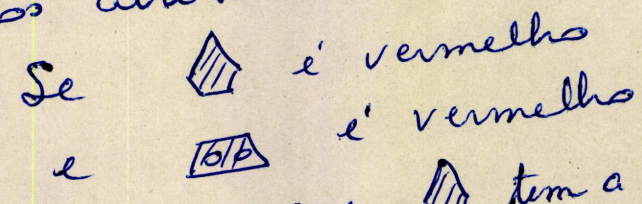 os
Se é vermelho
e é vermelho
tem a